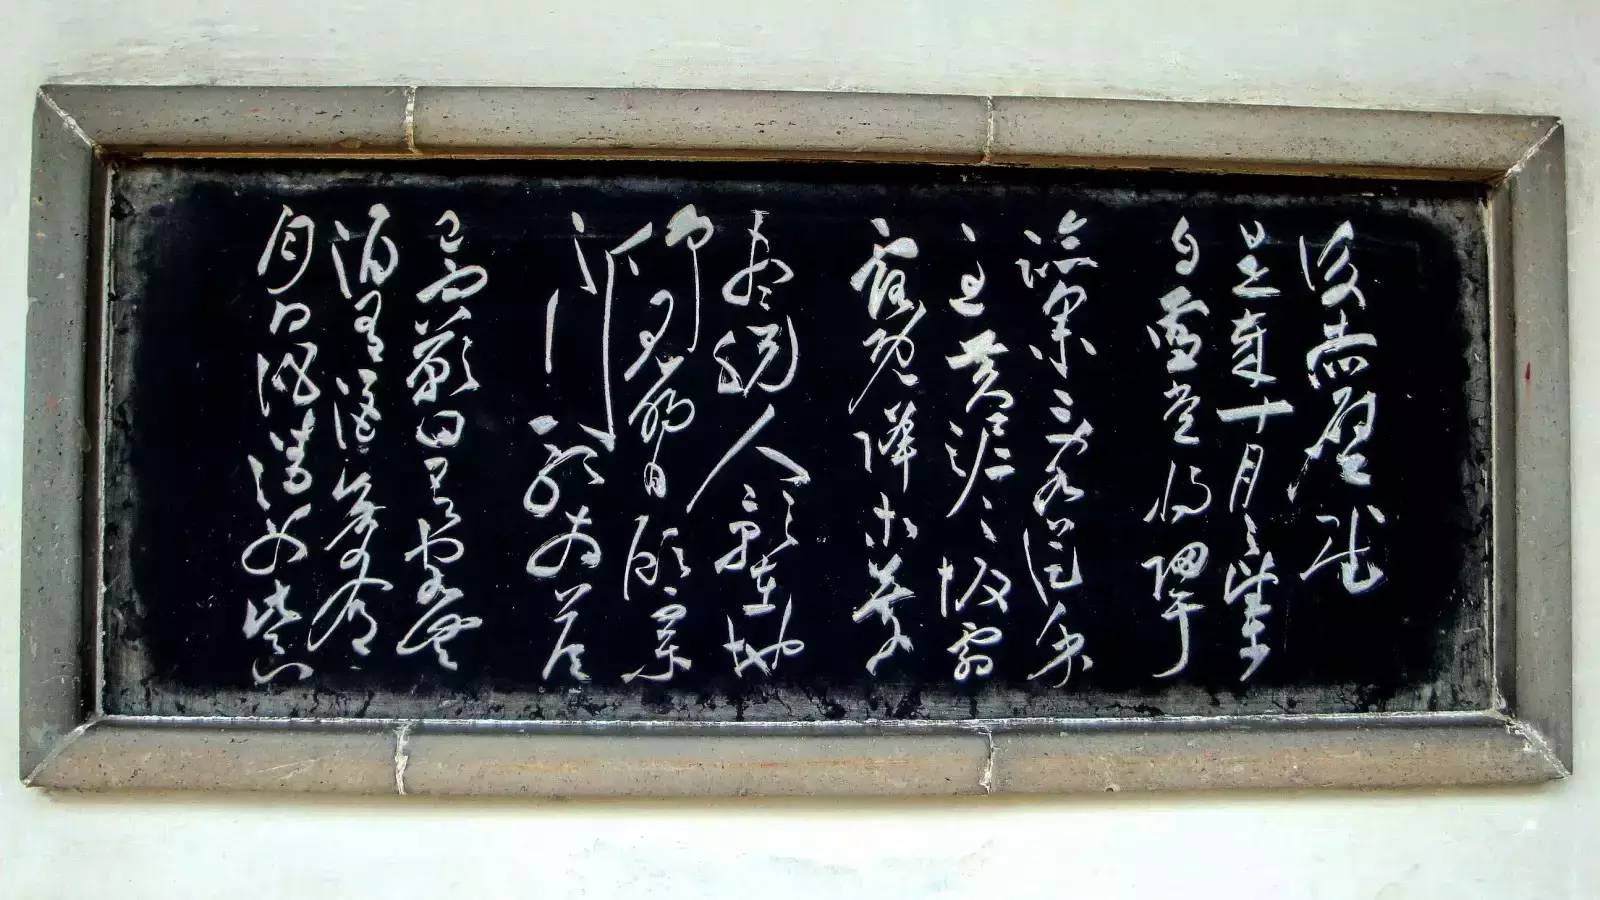 後赤壁賦
是歲十月之望步
自雪堂將歸于
臨皋二客從余
過黃泥之坂霜
露既降木葉
盡脫人影在地
仰見明月顧而樂
之行歌相答
已而歎曰有客無
酒有酒無肴
月白風清如此